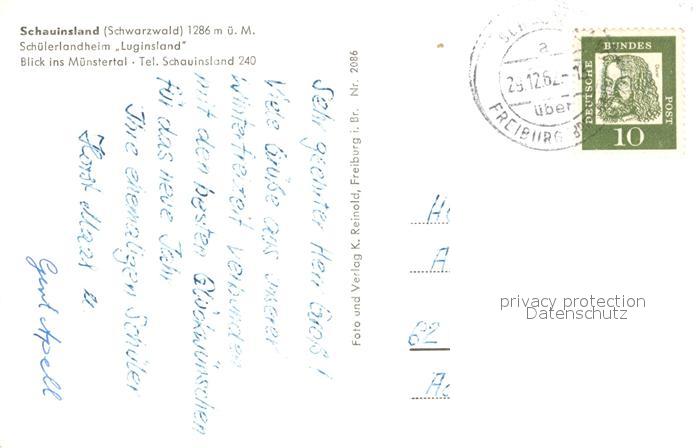 Schauinsland (Schwarzwald) 1286 m ü. M.
Schülerlandheim „Luginsland"
Blick ins Münstertal · Tel. Schauinsland 240
Sehr geehrter Herr Groß!
Viele Grüße aus unserer
Winterfreizeit verbunden
mit den besten Glückwünschen
für das neue Jahr
Ihre ehemaligen Schüler
Horst Maas u.
Gerd Apell
Foto und Verlag K. Reinold, Freiburg i. Br. Nr. 2086
a
29.12.62
über
FREIBURG
DEUTSCHE BUNDES POST
Dürer
10
62
privacy protection
Datenschutz